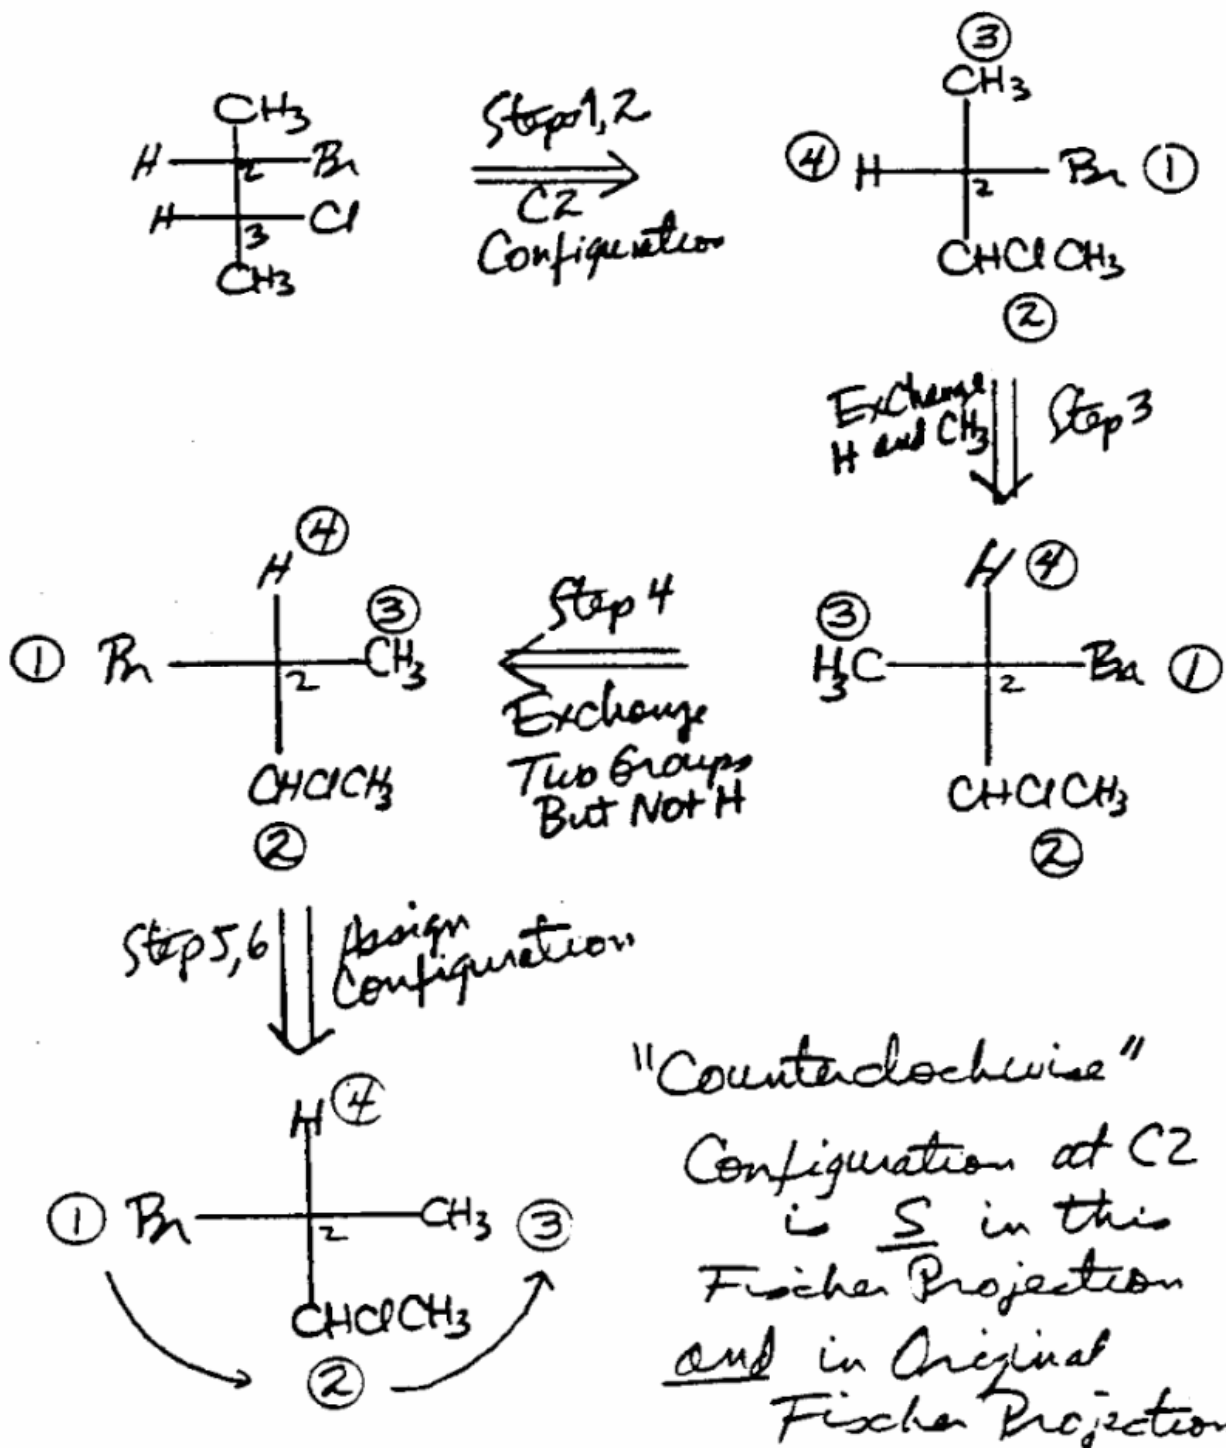 CH3
H Br
2
H Cl
3
CH3
Steps 1, 2
C2
Configuration
③
CH3
④ H Br ①
2
CHClCH3
②
Exchange
H and CH3
Step 3
H ④
③
H3C Br ①
2
CHClCH3
②
Step 4
Exchange
Two Groups
But Not H
④
H
③
① Br CH3
2
CHClCH3
②
Step 5, 6
Assign
Configuration
H ④
① Br CH3 ③
2
CHClCH3
②
"Counterclockwise"
Configuration at C2
is S in this
Fischer Projection
and in Original
Fischer Projection